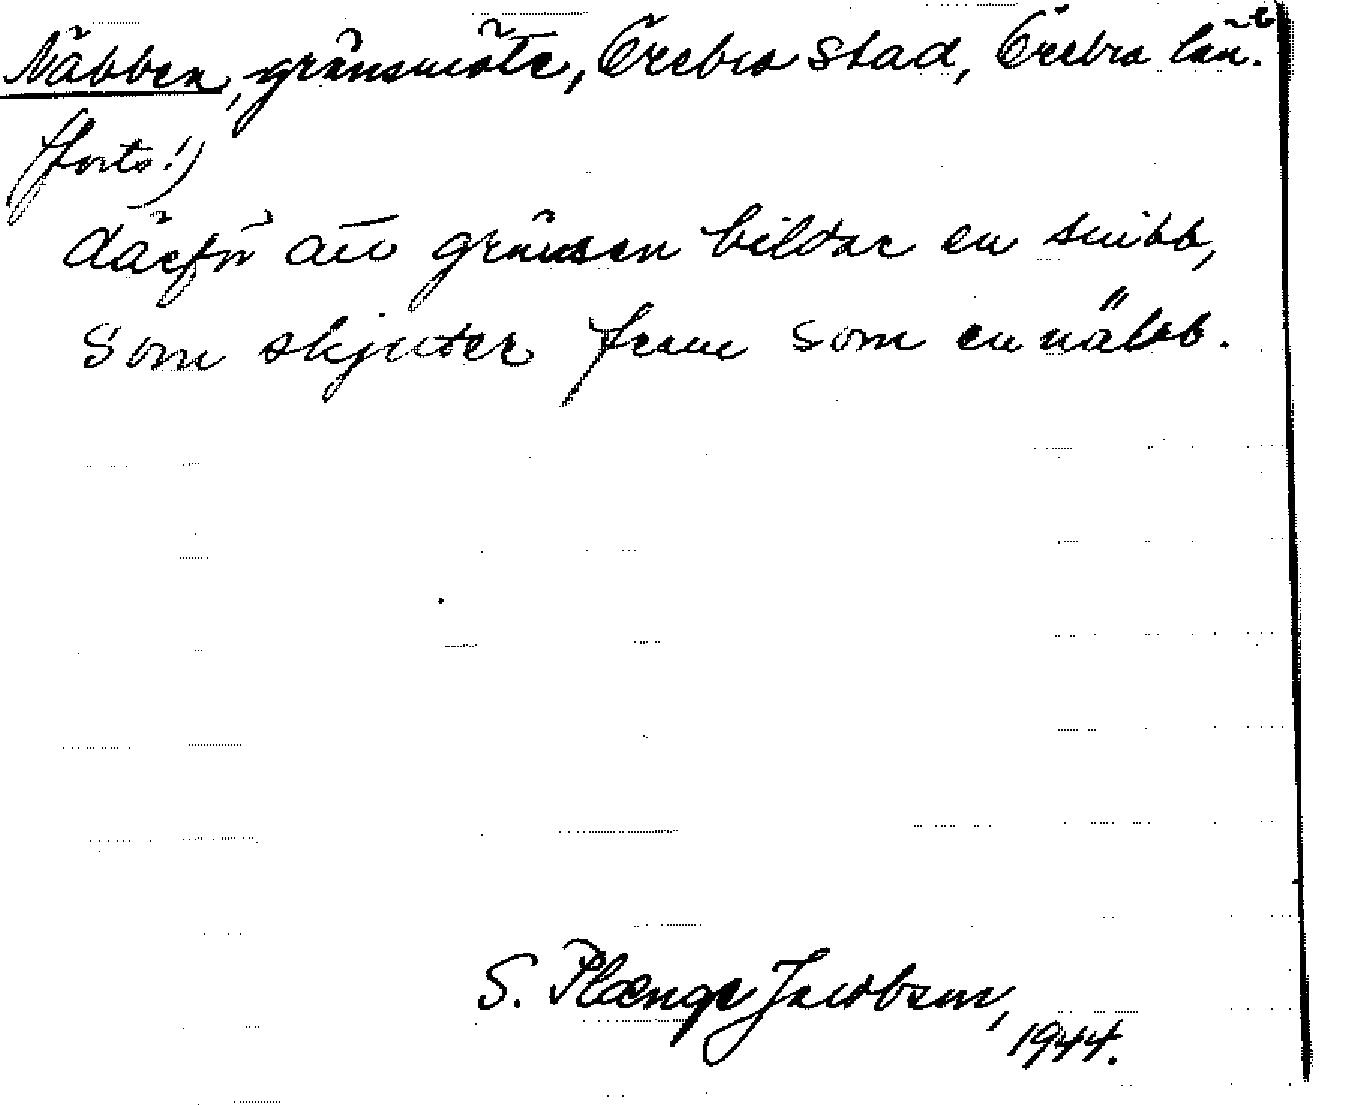 Näbben, gränsmöte, Örebro stad, Örebro län.
(forts!)
därför att gränsen bildar en snibb,
som skjuter fram som en näbb.
S. Plænge Jacobson,
1944.